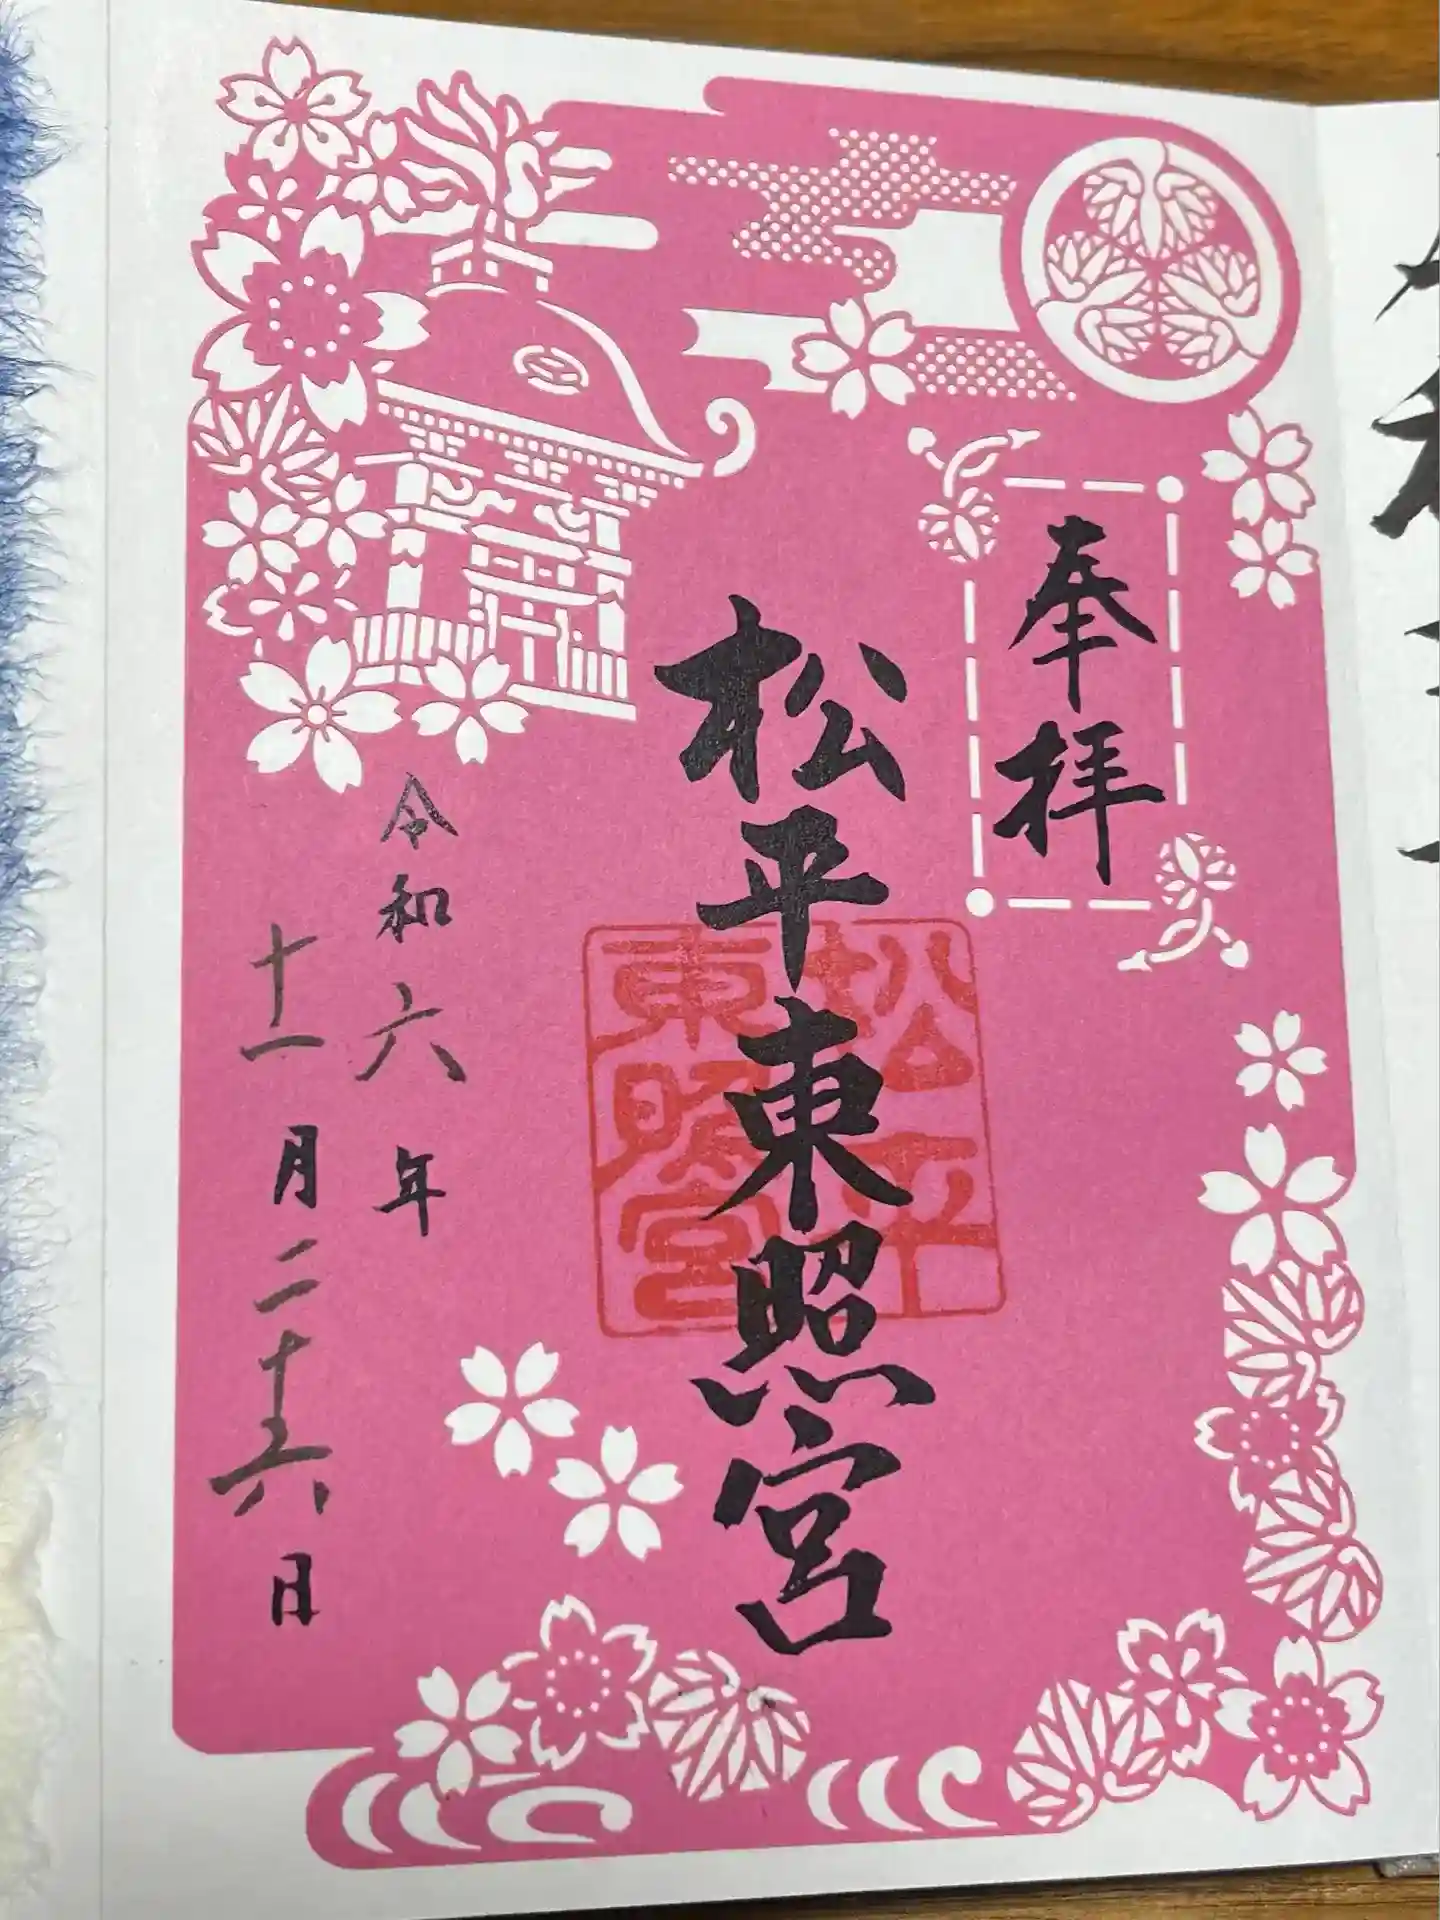 奉拝
松平東照宮
松平
東照宮
令和六年
十一月二十六日